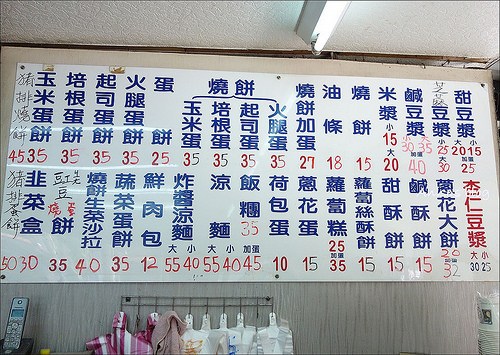 甜豆漿 大小 20 15
芝麻豆漿 大小 30 25
鹹豆漿 30 加蛋 40 35
米漿 小 15 大 20
燒餅 15
油條 18
燒餅加蛋 27
燒餅
火腿蛋 35
起司蛋 35
培根蛋 35
玉米蛋 35
蛋餅 25
火腿蛋餅 35
起司蛋餅 35
培根蛋餅 35
玉米蛋餅 35
豬排燒餅 45
杏仁豆漿 大小 30 25
蔥花大餅 20 加蛋 32
鹹酥餅 15
甜酥餅 15
蘿蔔絲酥餅 15
蘿蔔糕 25 加蛋 35
蔥花蛋 15
荷包蛋 10
飯糰 35 加蛋 45
涼麵 大小 55 40
炸醬涼麵 大小 55 40
鮮肉包 12
蔬菜蛋餅 35
燒餅生菜沙拉 40
燒蛋餅 35
韭菜盒 30
豬排蛋餅 50